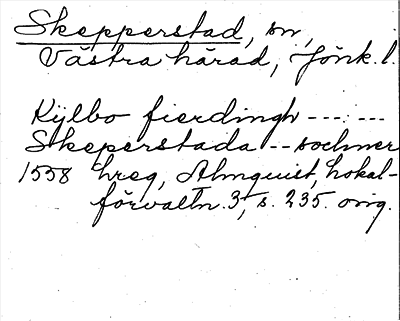 Skepperstad, sn,
Västra härad, Jönk. l.
Kylbo fierdingh --- ---
Skeperstada -- sochner
1558 hreg, Almquist, Lokal-
förvaltn. 3, s. 235. orig.